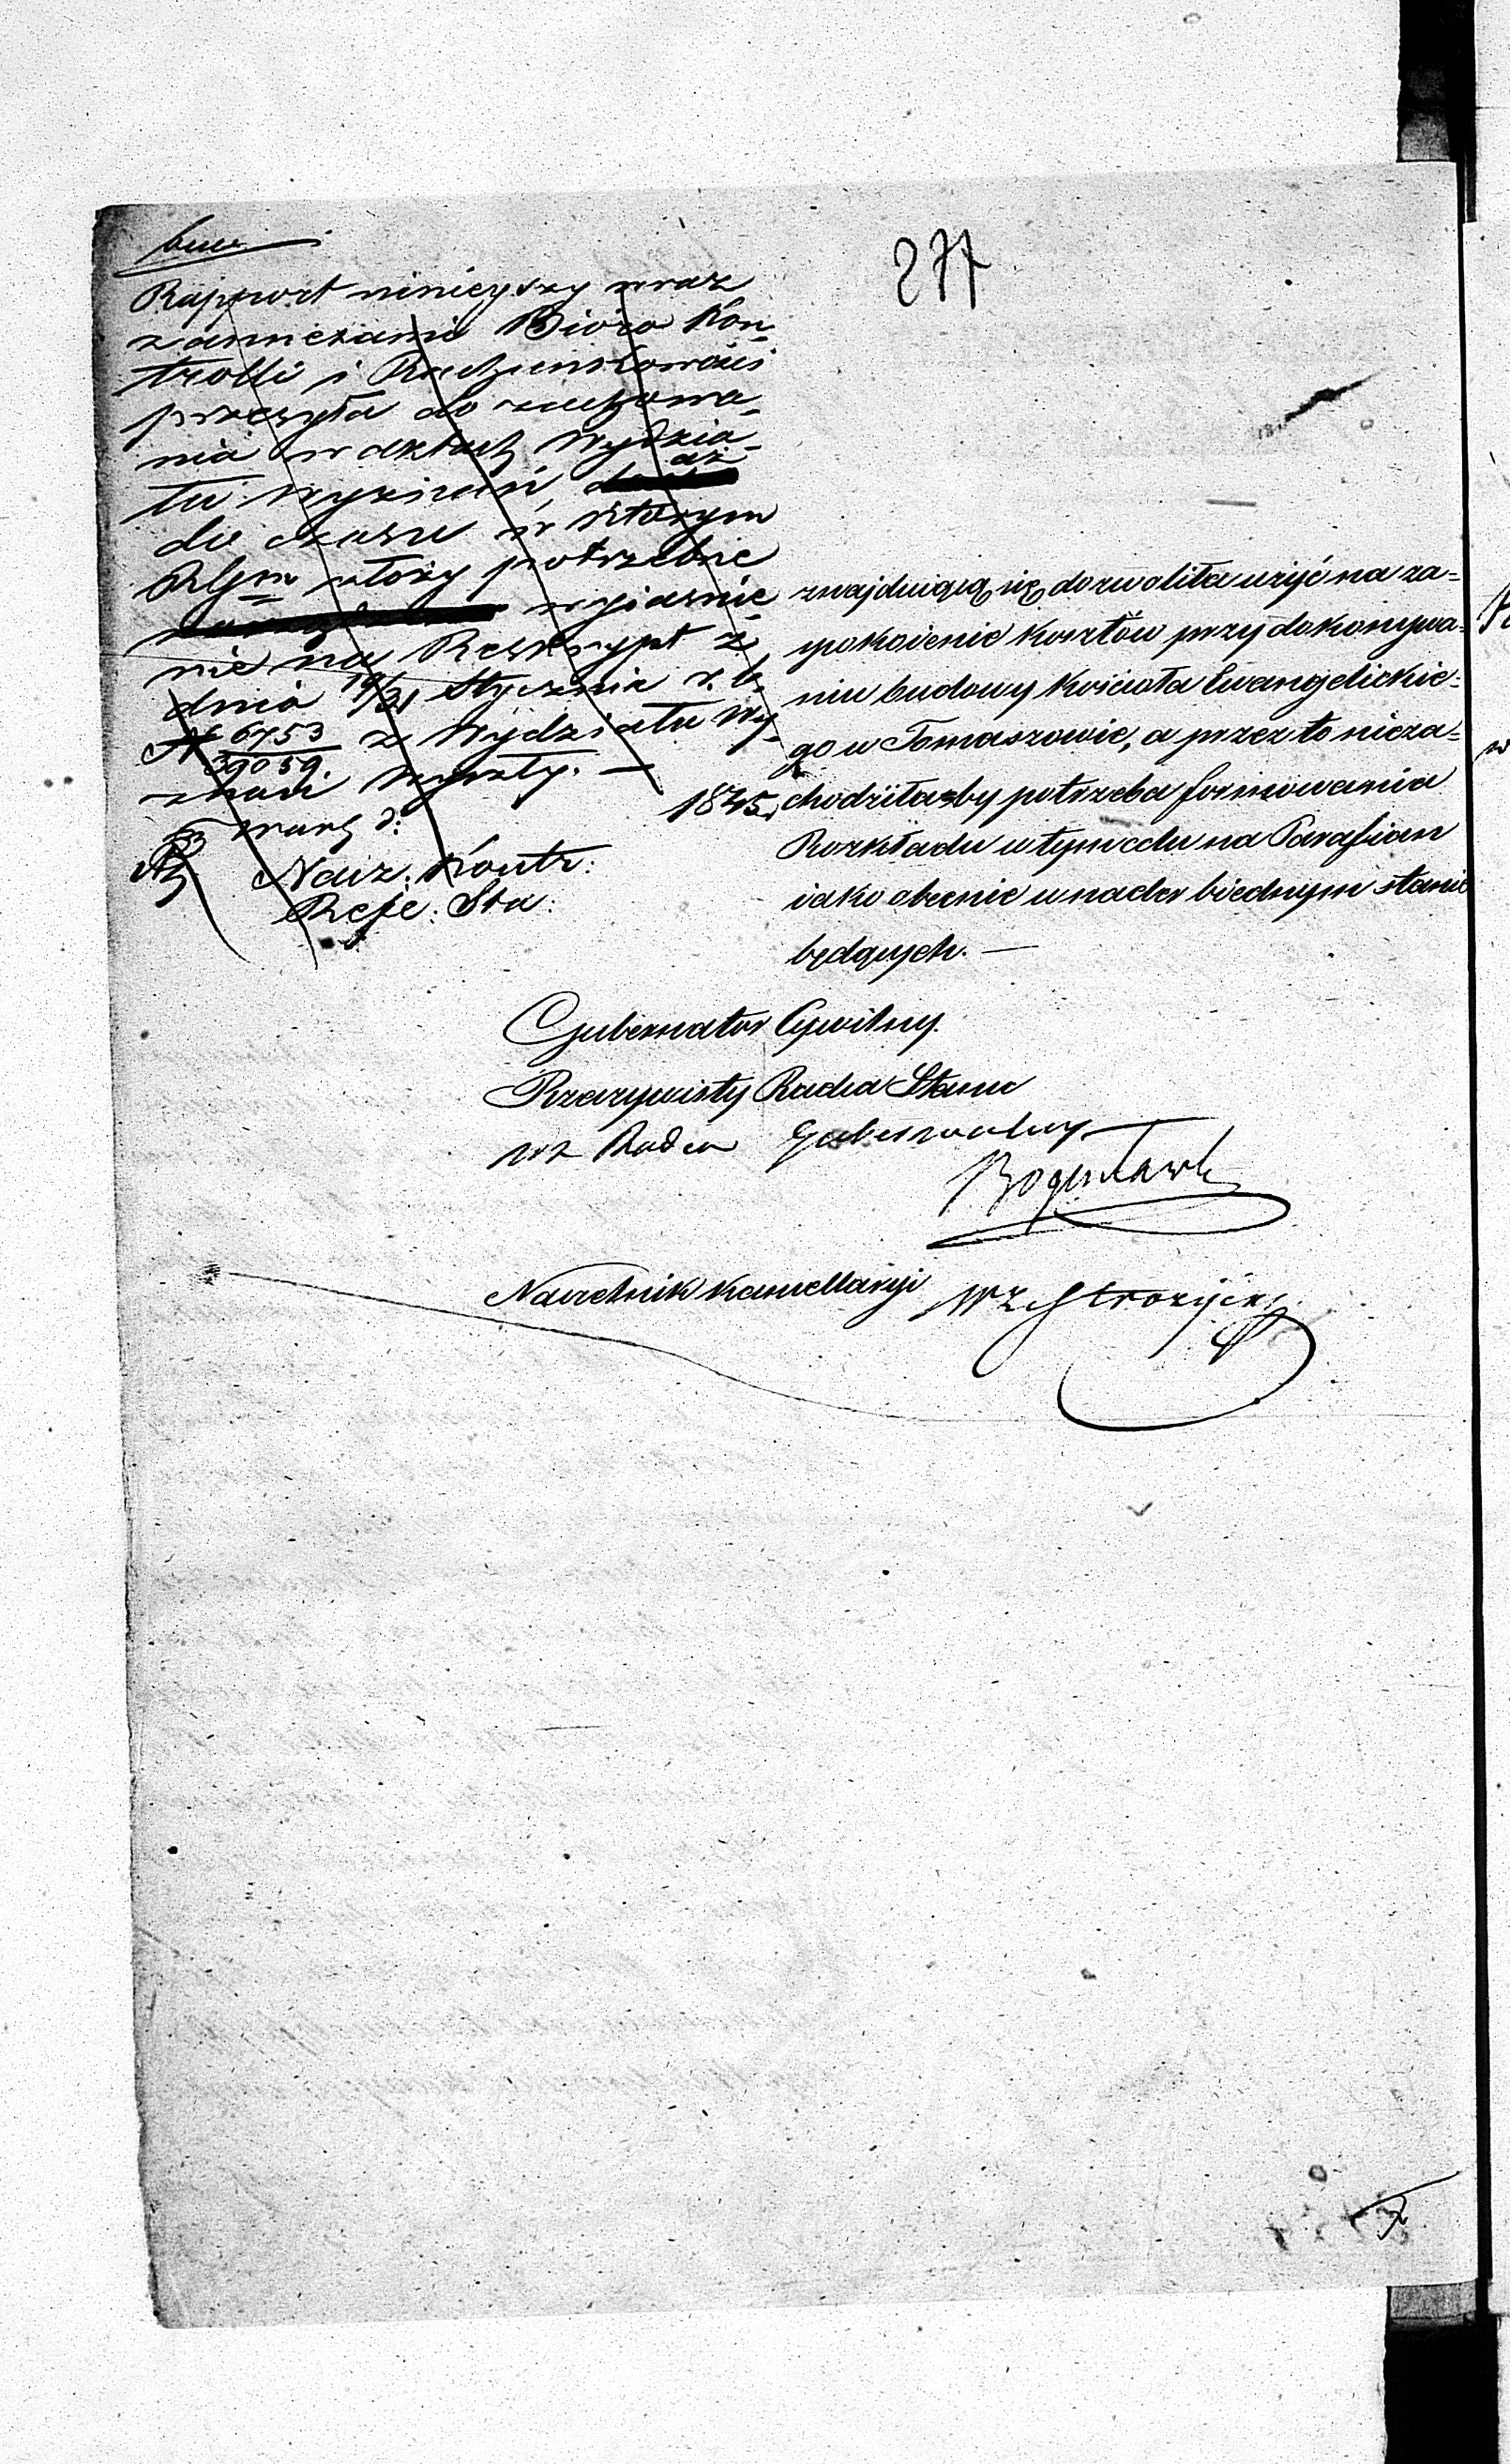 277
Rapport niniejszy wraz
z annexami Bióro Kon-
trolli i Rachunkowości
przesyła do zachowa-
nia w aktach Wydzia-
łu Wyznań, aż
do czasu w którym
złoży potrzebne
wyjaśnie-
nie na Reskrypt z
dnia 19/31 Stycznia r. b.
N 6753/39059. z Wydziału Wy-
znań wyszły. —
Warsz d: 1845.
Nacz: Kontr:
Refe: Sta:
znajduiącą się dozwoliła użyć na za=
spokoienie kosztów przy dokonywa=
niu budowy Kościoła Ewangelickie=
go w Tomaszowie, a przez to nieza=
chodziłaby potrzeba formowania
Rozkładu w tym celu na Parafian
iako obecnie w nader biednym stanie
będących. —
Gubernator Cywilny.
Rzeczywisty Radca Stanu
wz Radca Gubernialny
Bogusławski
Naczelnik Kancellaryi WZ